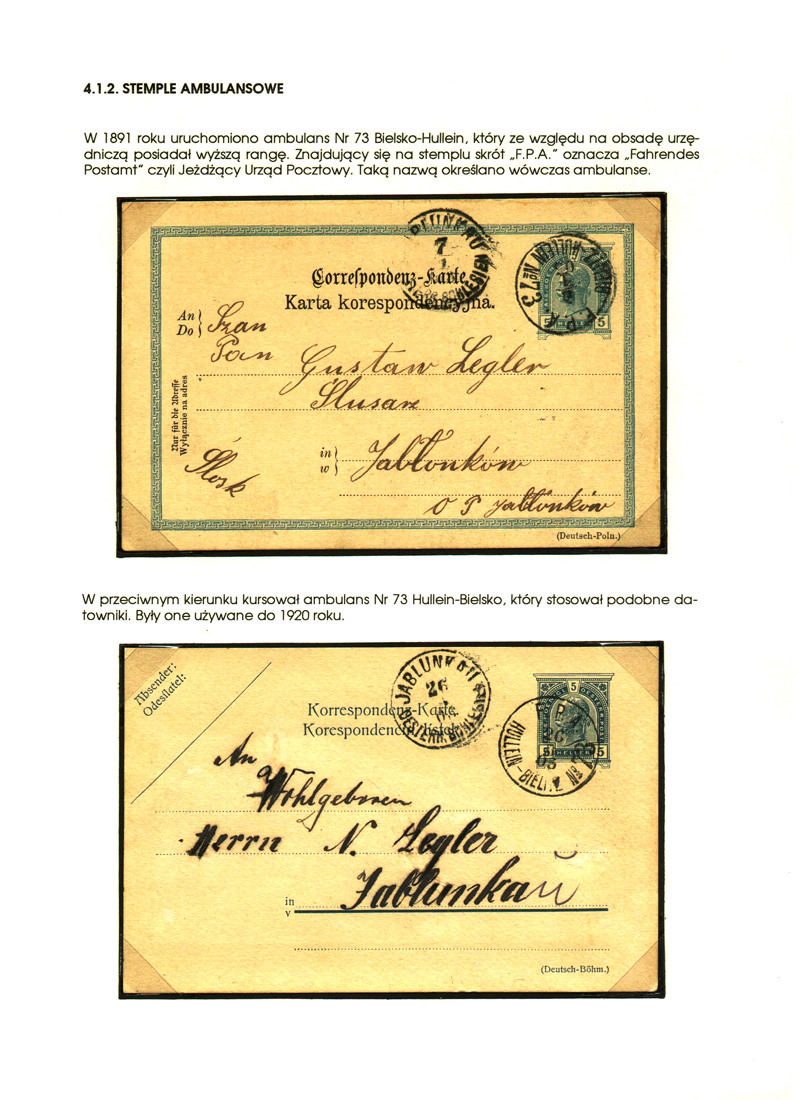 4.1.2. STEMPLE AMBULANSOWE
W 1891 roku uruchomiono ambulans Nr 73 Bielsko-Hullein, który ze względu na obsadę urzę-
dniczą posiadał wyższą rangę. Znajdujący się na stemplu skrót „F.P.A." oznacza „Fahrendes
Postamt" czyli Jeżdżący Urząd Pocztowy. Taką nazwą określano wówczas ambulanse.
7
BIELITZ-HULLEIN No 73
5
Correspondenz-Karte.
Karta korespondencyjna.
An
Do
Pan
Gustaw Legler
Ślusarz
Nur für die Adresse
Wyłącznie na adres
Śląsk
in
w
Jabłonków
O P Jabłonków
(Deutsch-Poln.)
W przeciwnym kierunku kursował ambulans Nr 73 Hullein-Bielsko, który stosował podobne da-
towniki. Były one używane do 1920 roku.
Absender:
Odesílatel:
JABLUNKAU
26
5
F.P.A.
HULLEIN-BIELITZ No
5 5
Korrespondenz-Karte.
Korespondenční lístek.
An
Wohlgeboren
Herrn N. Legler
in
v
Jablunkau
(Deutsch-Böhm.)